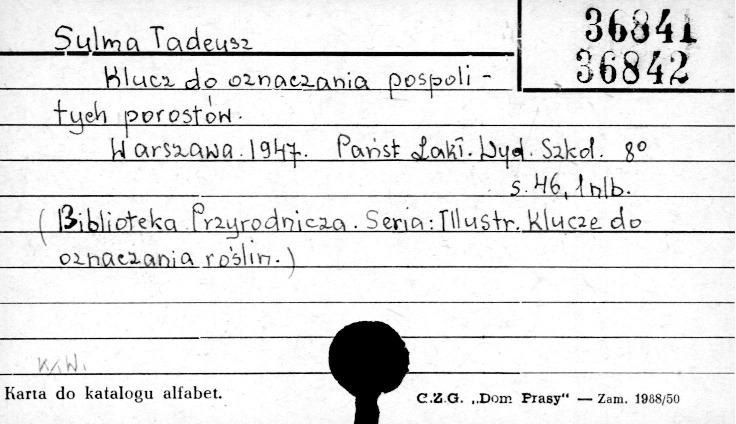 36841
36842
Sulma Tadeusz
Klucz do oznaczania pospoli-
tych porostów.
Warszawa. 1947. Państ Zakł. Wyd. Szkol. 8º
s. 46, 1 nlb.
(Biblioteka Przyrodnicza. Seria: Illustr. Klucze do
oznaczania roślin.)
Karta do katalogu alfabet.
C.Z.G. „Dom Prasy" — Zam. 1988/50